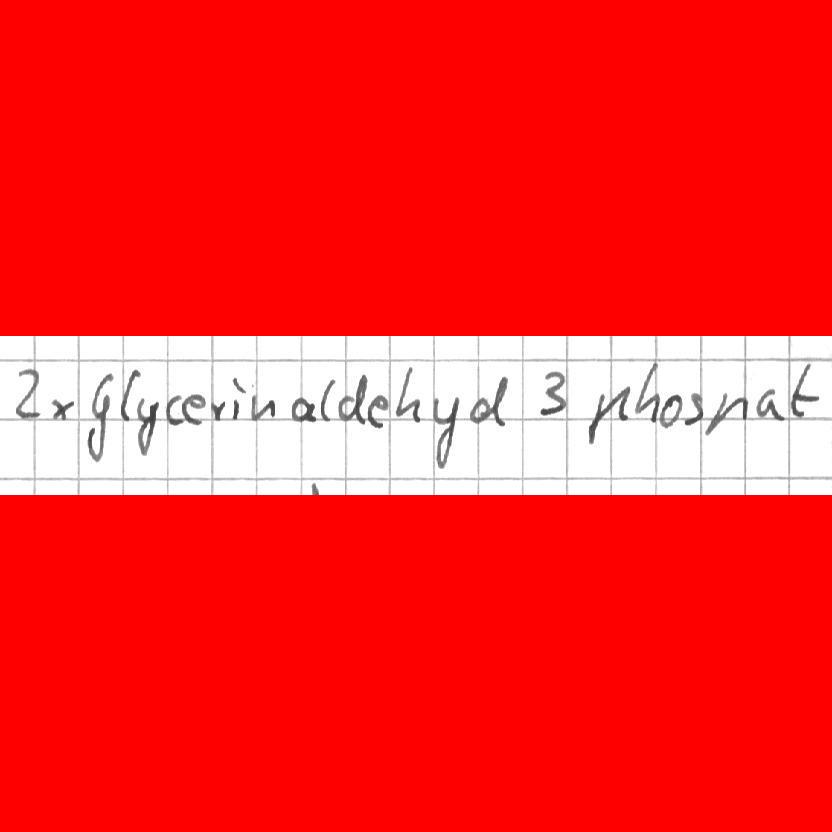 2x Glycerinaldehyd 3 phospat